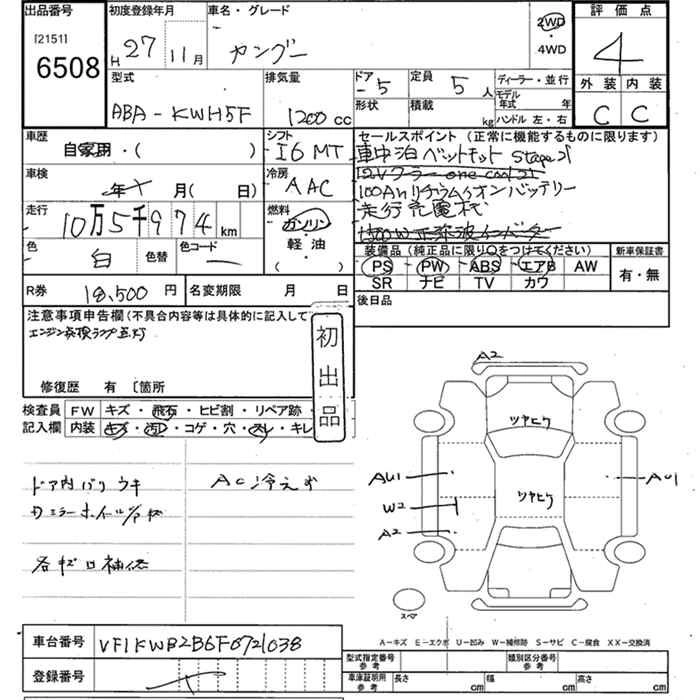 出品番号
[2151]
6508
初度登録年月
H 27 11月
車名・グレード
カングー
2WD
・
4WD
評価点
4
外装 内装
C C
型式
ABA-KWH5F
排気量
1200 cc
ドア
-5
形状
定員
5 人
積載
kg
ディーラー・並行
モデル
年式 年
ハンドル 左・右
車歴
自家用・( )
シフト
I6 MT
セールスポイント (正常に機能するものに限ります)
車中泊ベットキット stage21
12Vクーラー one cool 21
100Ahリチウムイオンバッテリー
走行充電式
1500W正弦波インバーター
車検
年 月(日)
冷房
AAC
走行
10万5千974 km
燃料
ガソリン
・
軽・油
( )
色
白
色替
色コード
装備品 (純正品に限り○をつけてください)
PS PW ABS エアB AW
SR ナビ TV カワ
新車保証書
有・無
R券 18,500 円
名変期限 月 日
後日品
注意事項申告欄(不具合内容等は具体的に記入して
エンジン点検ランプ点灯
初出品
修復歴 有 〔箇所
検査員
記入欄
FW キズ・飛石・ヒビ割・リペア跡・
内装 キズ・汚レ・コゲ・穴・スレ・キレ
ドア内バリウキ
AC冷えず
各キロ補修
A2
ツヤヒケ
ツヤヒケ
AU1
W2
A2
AU1
スペア
A-キズ E-エクボ U-凹み W-補修跡 S-サビ C-腐食 XX-交換済
車台番号 VF1KWB2B6F0721038
登録番号
型式指定番号
参考
類別区分番号
参考
車庫証明用
参考
長さ cm
幅 cm
高さ cm